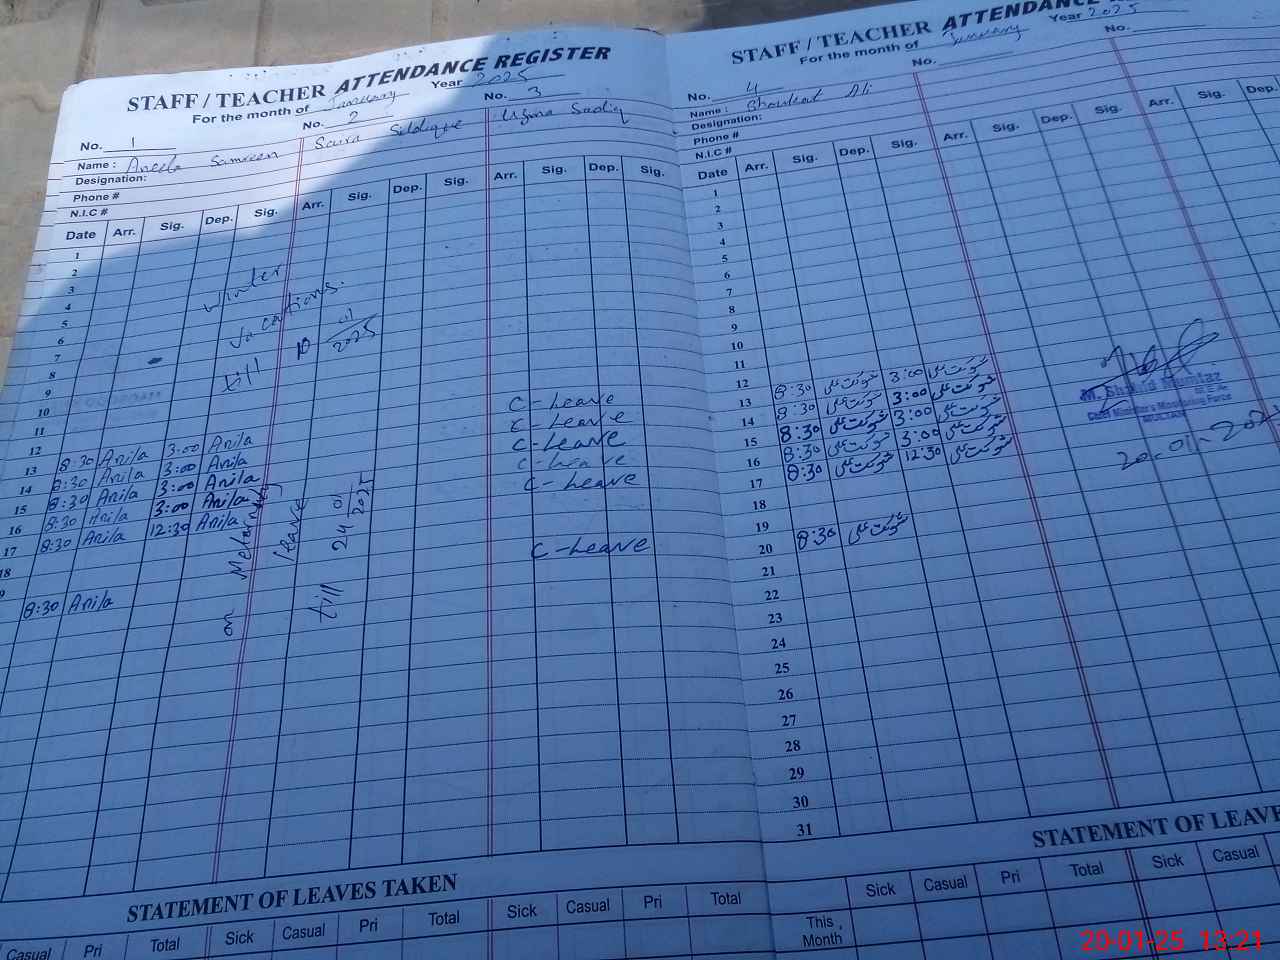 STAFF / TEACHER ATTENDANCE REGISTER
For the month of January Year 2025
No. 1 No. 2 No. 3
Name : Aneela Samreen Saira Siddique Uzma Sadiq
Designation:
Phone #
N.I.C #
Date Arr. Sig. Dep. Sig. Arr. Sig. Dep. Sig. Arr. Sig. Dep. Sig.
1
2
3
4
5
6
7
8
9
10
11
12
13 8:30 Anila 3:00 Anila
14 8:30 Anila 3:00 Anila
15 8:30 Anila 3:00 Anila
16 8:30 Anila 3:00 Anila
17 8:30 Anila 12:30 Anila
18
9
8:30 Anila
Winter
vacations.
till 10 01/2025
on Maternity
leave
till 24 01/2025
C-Leave
C-Leave
C-Leave
C-Leave
C-Leave
C-Leave
STATEMENT OF LEAVES TAKEN
Casual Pri Total Sick Casual Pri Total Sick Casual Pri Total
STAFF / TEACHER ATTENDANCE
For the month of January Year 2025
No. 4 No. No.
Name : Shoukat Ali
Designation:
Phone #
N.I.C #
Date Arr. Sig. Dep. Sig. Arr. Sig. Dep. Sig. Arr. Sig. Dep.
1
2
3
4
5
6
7
8
9
10
11
12
13 8:30 شوکت علی 3:00 شوکت علی
14 8:30 شوکت علی 3:00 شوکت علی
15 8:30 شوکت علی 3:00 شوکت علی
16 8:30 شوکت علی 3:00 شوکت علی
17 8:30 شوکت علی 12:30 شوکت علی
18
19
20 8:30 شوکت علی
21
22
23
24
25
26
27
28
29
30
31
M. Shahid Mumtaz
Chief Minister's Monitoring Force
MULTAN
20-01-202
STATEMENT OF LEAVE
Sick Casual Pri Total Sick Casual
This Month
20-01-25 13:21